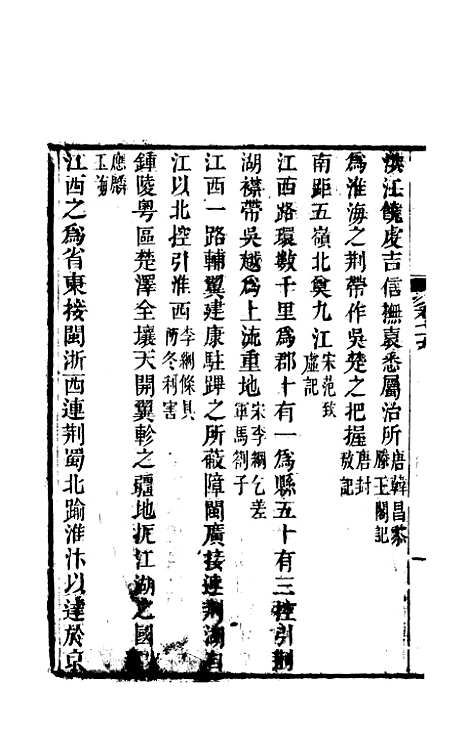 洪江饒虔吉信撫袁悉屬治所唐韓昌黎滕王閣記
為淮海之荆帶作吳楚之把握唐封敖記
南距五嶺北奠九江宋范致虛記
江西路環數千里為郡十有一為縣五十有三控引荆
湖襟帶吳越為上流重地宋李綱乞差軍馬劄子
江西一路輔翼建康駐蹕之所蔽障閩廣接連荆湖自
江以北控引淮西李綱條具防冬利害
鍾陵粤區楚澤全壤天開翼軫之疆地扼江湖之國
應麟玉海
江西之為省東接閩浙西連荆蜀北踰淮汴以達於京